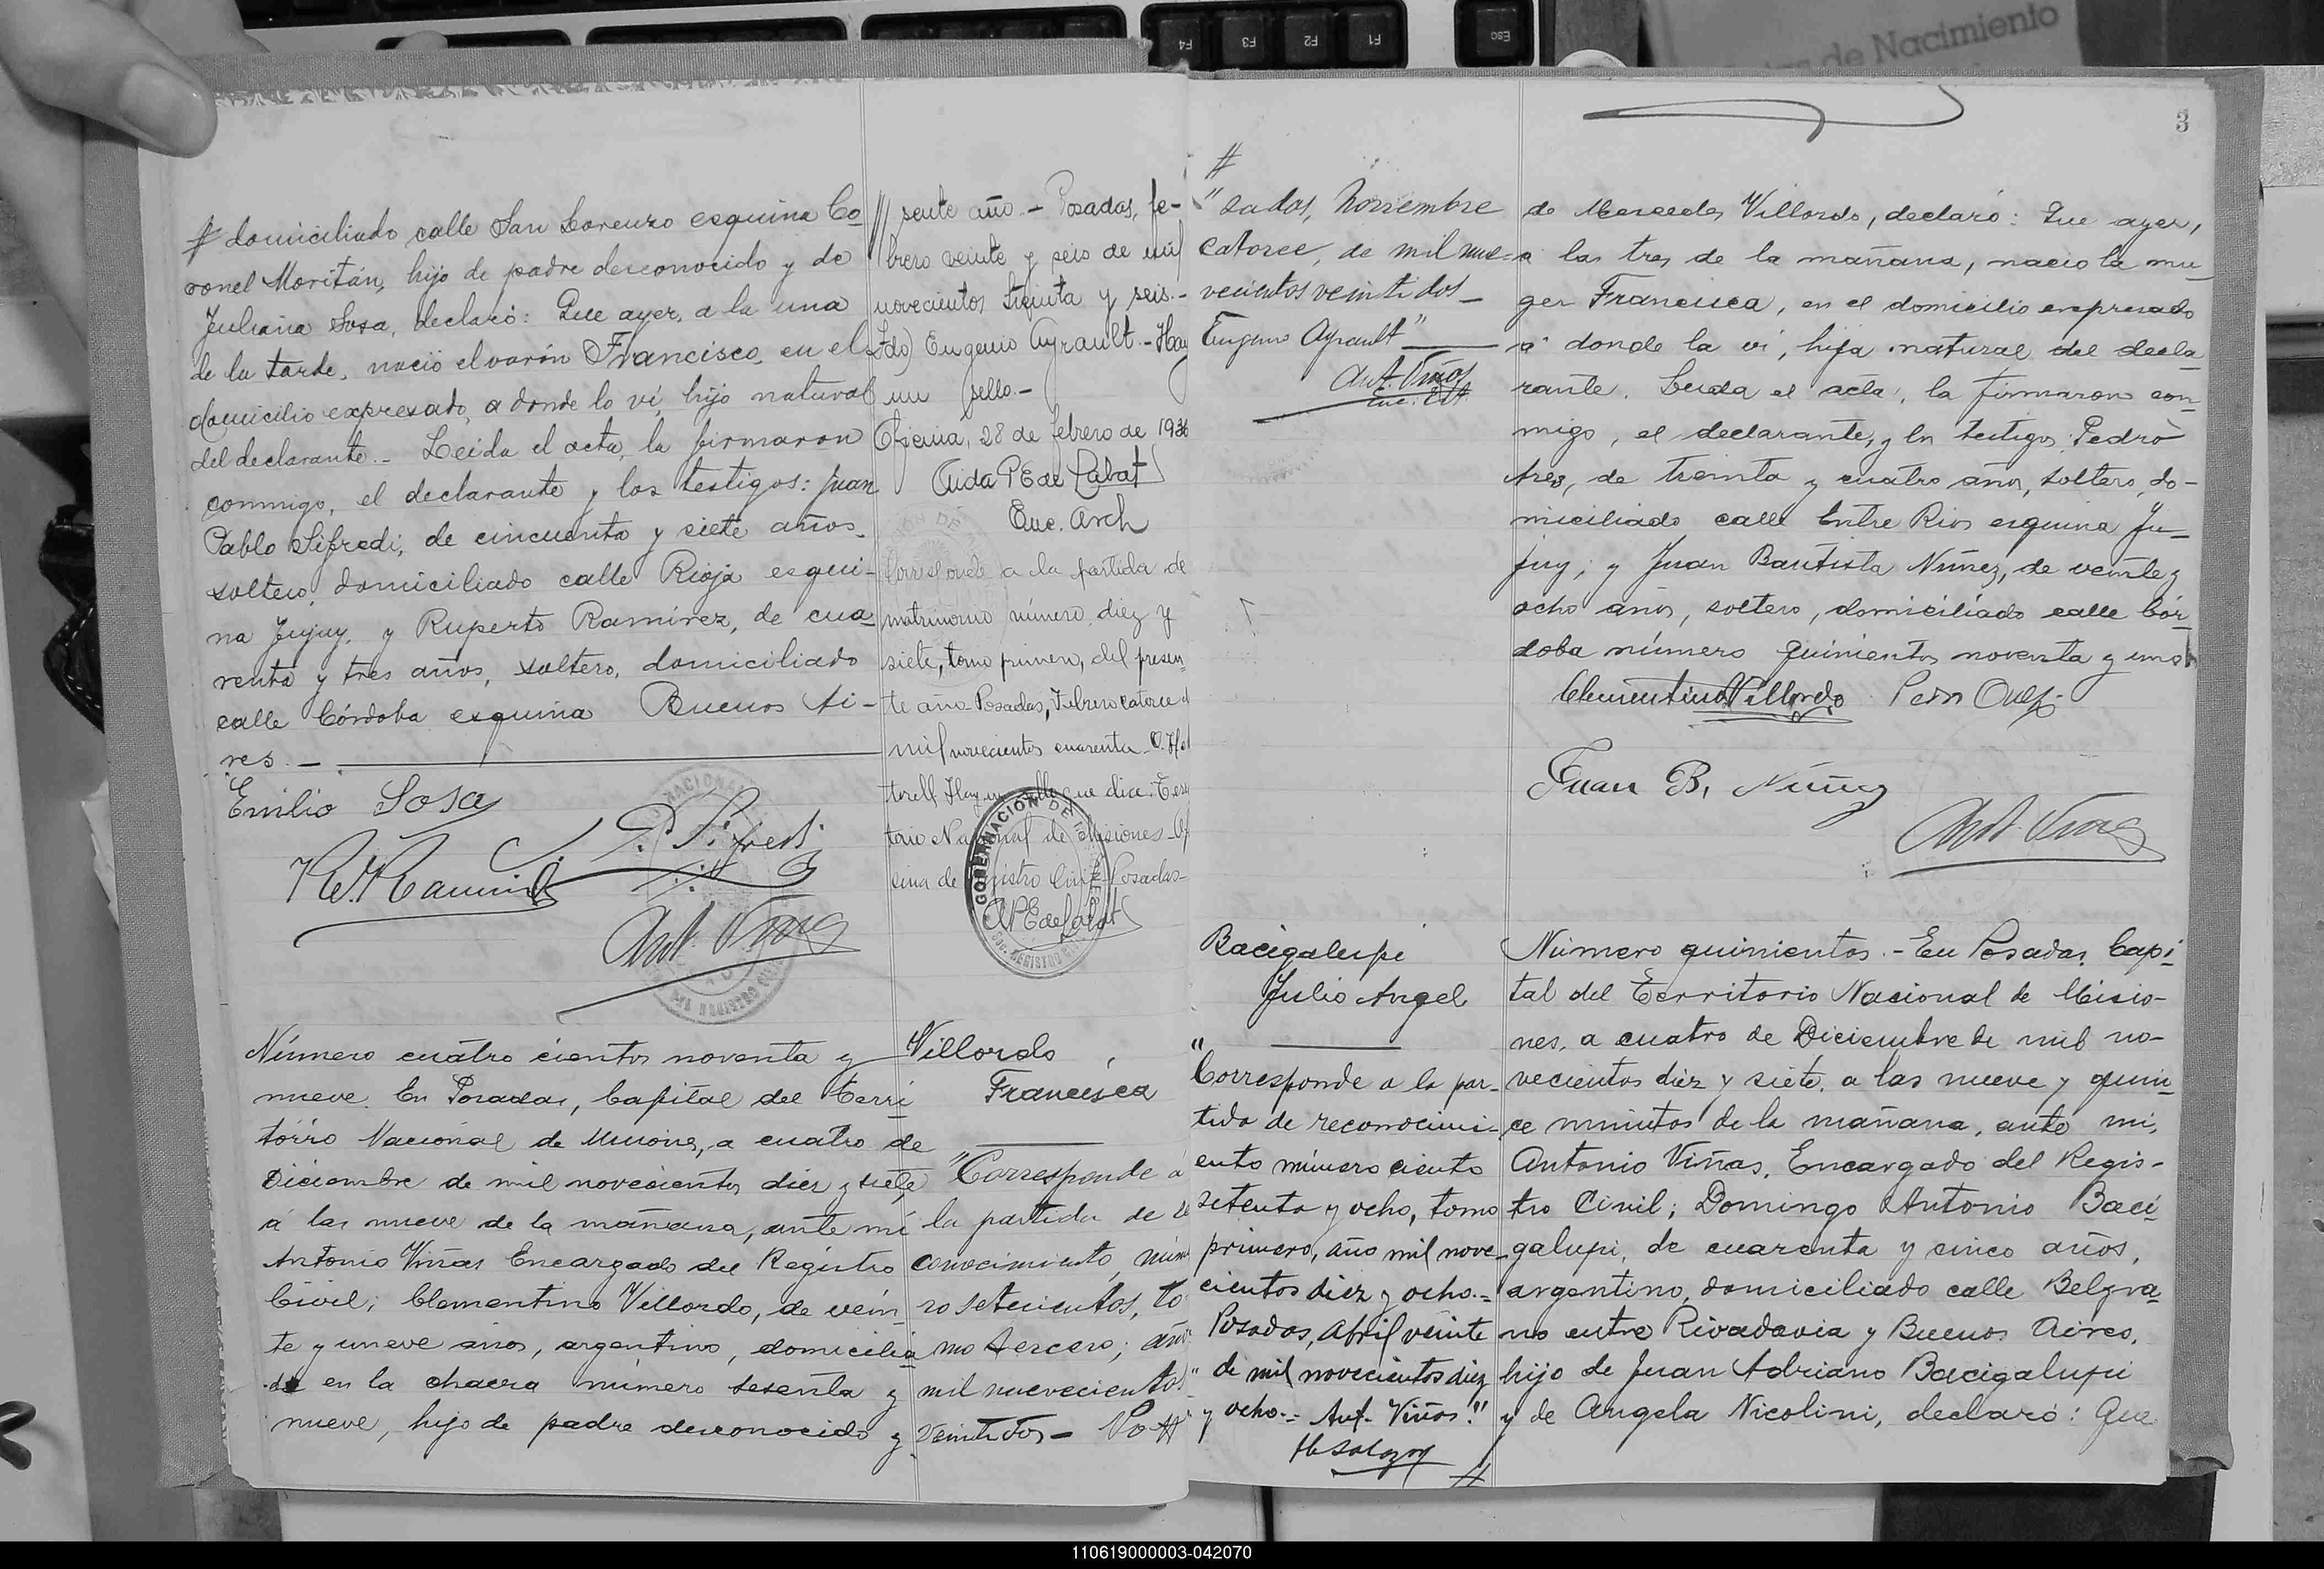 domiciliado calle San Lorenzo esquina Co-
ronel Moritán, hijo de padre desconocido y de
Juliana Sosa, declaró: Que ayer, a la una
de la tarde, nació el varón Francisco, en el
domicilio expresado, a donde lo ví, hijo natural
del declarante.- Leída el acta, la firmaron
conmigo, el declarante y los testigos: Juan
Pablo Sifredi, de cincuenta y siete años,
soltero, domiciliado calle Rioja esqui-
na Jujuy, y Ruperto Ramírez, de cua-
renta y tres años, soltero, domiciliado
calle Córdoba esquina Buenos Ai-
res.-
Emilio Sosa
P. Sifredi
R. Ramirez
Ant. Viñas
Número cuatro cientos noventa y
nueve. En Posadas, Capital del Terri
torio Nacional de Misiones, a cuatro de
Diciembre de mil novecientos diez y siete
á las nueve de la mañana, ante mí
Antonio Viñas Encargado del Registro
Civil; Clementino Villordo, de vein
te y nueve años, argentino, domicilia
do en la chacra número sesenta y
nueve, hijo de padre desconocido y
// sente año.- Posadas, fe-
brero veinte y seis de mil
novecientos treinta y seis.-
Fdo) Eugenio Ayrault.- Hay
un sello.-
Oficina, 28 de febrero de 1936
Aida P E de Labat
Enc. Arch
Corresponde a la partida de
matrimonio número, diez y
siete, tomo primero, del presen-
te año Posadas, Febrero catorce d
mil novecientos cuarenta
torell Hay un sello que dice: Terri
torio Nacional de Misiones- Of
cina de Registro Civil Posadas-
A P E de Labat
GOBERNACIÓN DE
REGISTRO CIVIL
Villordo
Francisca
"Corresponde á
la partida de re
conocimiento, núme
ro setecientos, to
mo tercero; año
mil nuevecientos
veintidos- Po #
3
#
"sadas, Noviembre
catorce, de mil nue-
vecientos veintidos-
Eugenio Ayrault"
Ant. Viñas
de Mercedes Villordo, declaró: Que ayer,
a las tres de la mañana, nació la mu
ger Francisca, en el domicilio expresado
a donde la ví, hija natural del decla
rante. Leida el acta, la firmaron con-
migo, el declarante, y los testigos: Pedro
de treinta y cuatro años, soltero, do-
miciliado calle Entre Rios esquina Ju-
juy; y Juan Bautista Núñez, de veinte y
ocho años, soltero, domiciliado calle Cór-
doba número quinientos noventa y uno
Clementino Villordo
Juan B. Núñez
Ant. Viñas
Bacigalupi
Julio Angel
"
Corresponde a la par-
tida de reconocimi-
ento número ciento
setenta y ocho, tomo
primero, año mil nove-
cientos diez y ocho.-
Posadas, Abril veinte
de mil novecientos diez
y ocho.- Ant. Viñas."
#
Número quinientos.- En Posadas, Capi-
tal del Territorio Nacional de Misio-
nes, a cuatro de Diciembre de mil no-
vecientos diez y siete, a las nueve y quin-
ce minutos de la mañana, ante mi,
Antonio Viñas, Encargado del Regis-
tro Civil; Domingo Antonio Baci-
galupi, de cuarenta y cinco años,
argentino, domiciliado calle Belgra-
no entre Rivadavia y Buenos Aires,
hijo de Juan Adriano Bacigalupi
y de Angela Nicolini, declaró: Que
de Nacimiento
F4 F3 F2 F1 Esc
110619000003-042070